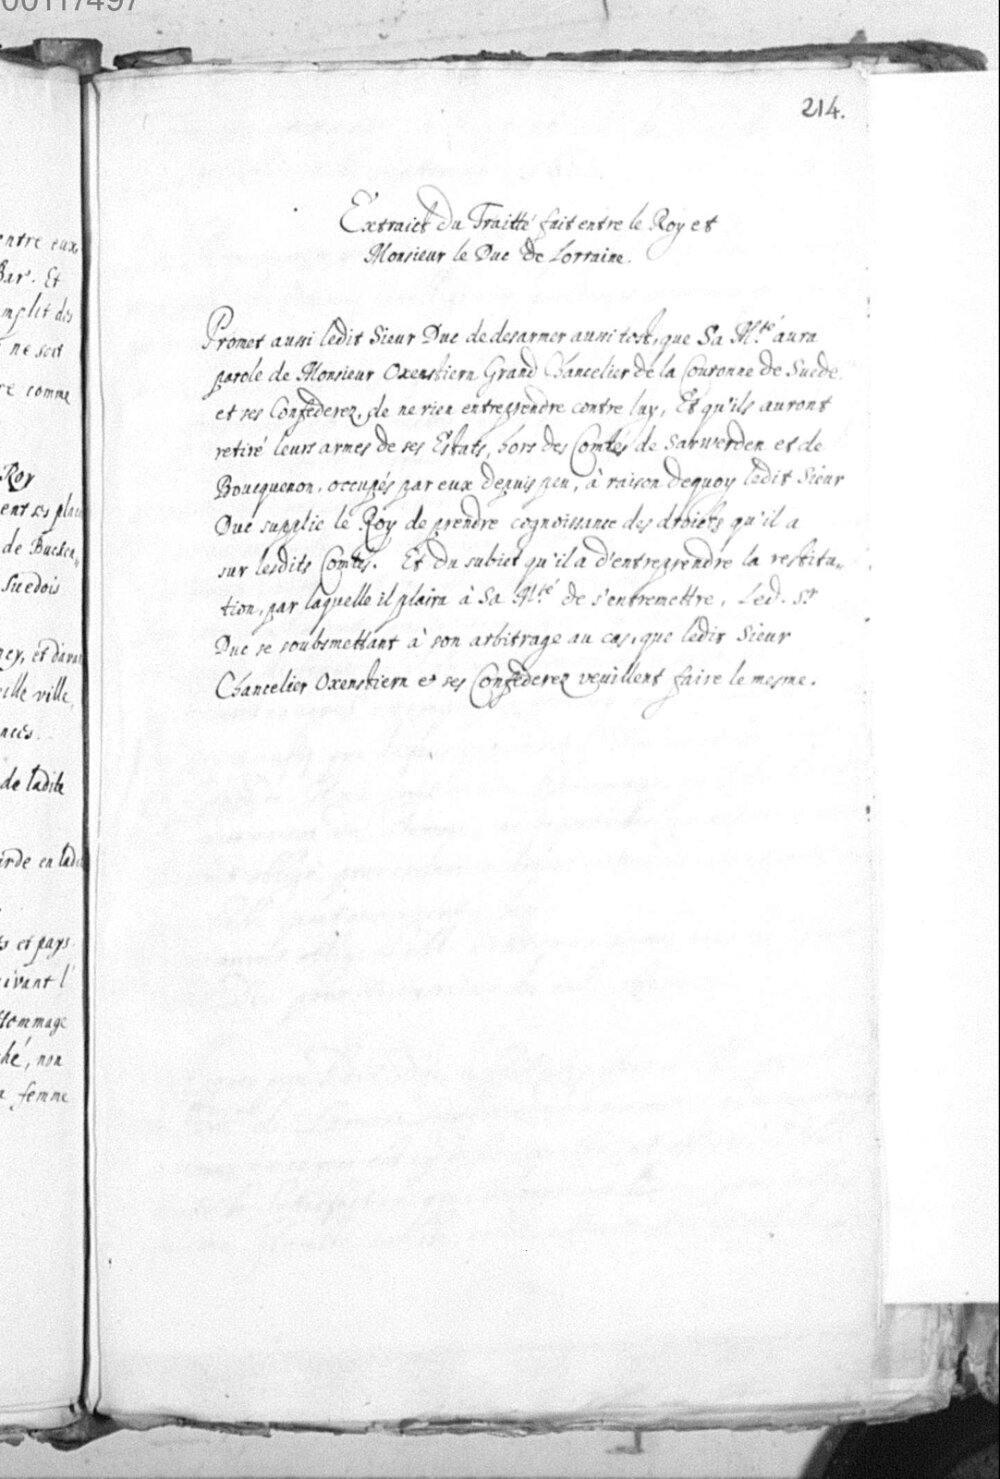 00117497
214.
Extraict du Traitté fait entre le Roy et
Monsieur le Duc de Lorraine.
Promet aussi ledit Sieur Duc de desarmer aussi tost, que Sa M.té aura
parole de Monsieur Oxenstiern Grand Chancelier de la Couronne de Suede
et ses Confederez, de ne rien entreprendre contre luy, Et qu'ils auront
retiré leurs armes de ses Estats, hors des Comtés de Sarwerden et de
Boucquenon, occupés par eux depuis peu, à raison dequoy ledit Sieur
Duc supplie le Roy de prendre cognoissance des droicts qu'il a
sur lesdits Comtés. Et du subiet qu'il a d'entreprendre la restitu„
tion, par laquelle il plaira à Sa M.té de s'entremettre, Led. Sr
Duc se soubsmettant à son arbitrage au cas, que ledit Sieur
Chancelier Oxenstiern et ses Confederez veuillent faire le mesme.
entre eux
Bar. Et
mplit des
ne soit
re comme
Roy
ent ses plac
de Buchen„
Suedois
ncy, et davan
ille ville,
nces.
de ladite
arde en lad
s et pays
uivant l'
Hommage
ché, non
a femme